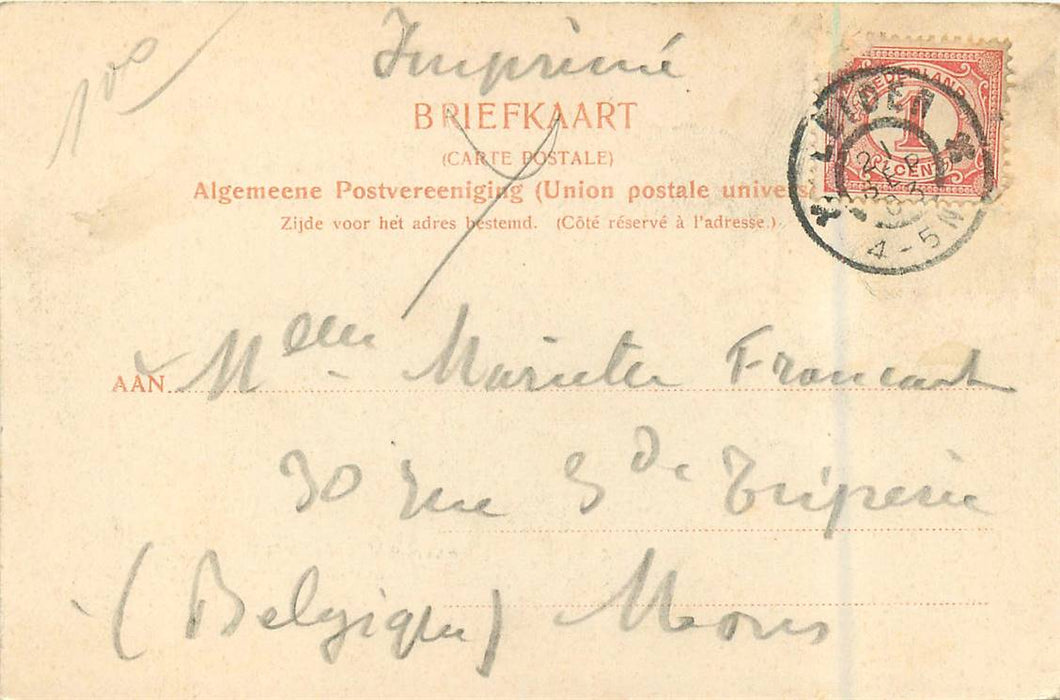 Imprimé
100
BRIEFKAART
(CARTE POSTALE)
Algemeene Postvereeniging (Union postale univers
Zijde voor het adres bestemd. (Côté réservé à l'adresse.)
NEDERLAND
1
CENT
LEIDEN
4-5N
AAN Melle Mariette Francart
30 rue Gde Triperie
(Belgique) Mons